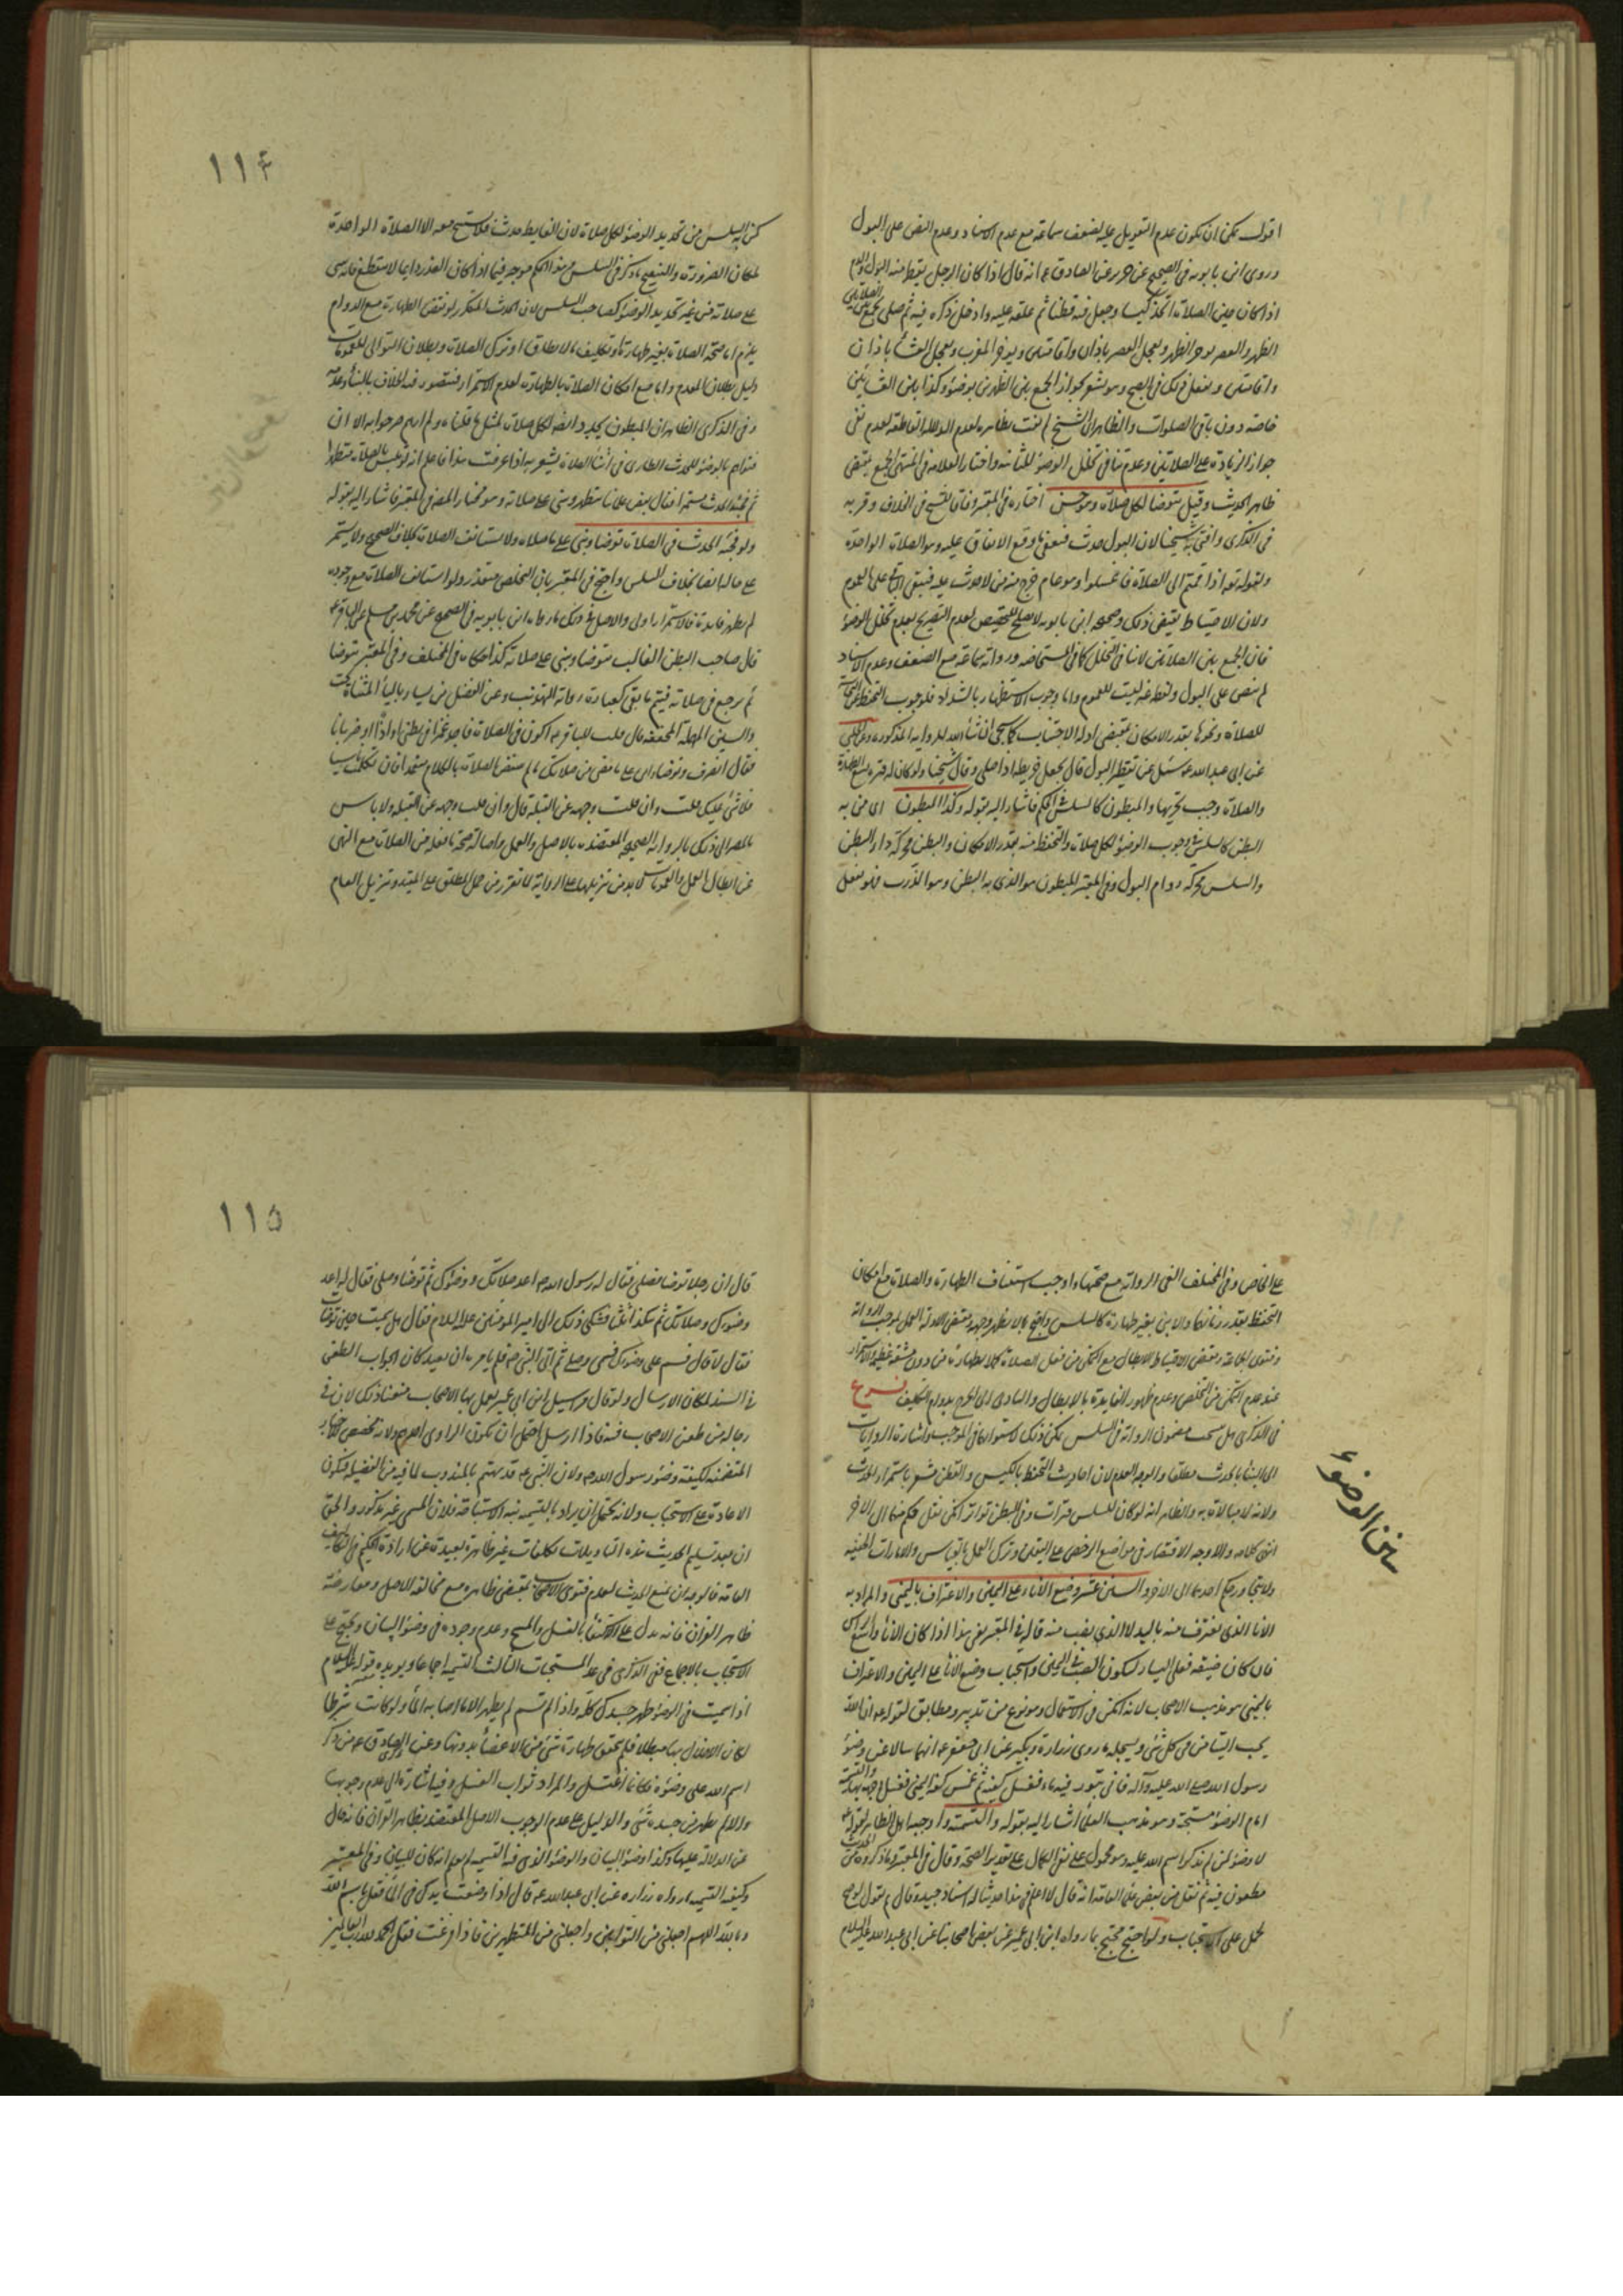 اقول يمكن ان يكون عدم التعويل عليه لضعف سماعة مع عدم الاسناد وعدم النص على البول
وروى ابن بابويه في الصحيح عن حريز عن الصادق ع انه قال اذا كان الرجل يقطر منه البول والدم
اذا كان حين الصلاة اتخذ كيسا وجعل فيه قطنا ثم علقه عليه وادخل ذكره فيه ثم صلى يجمع بين الصلاتين
الظهر والعصر يؤخر الظهر ويعجل العصر باذان واقامتين ويؤخر المغرب ويعجل العشاء باذان
واقامتين ويفعل ذلك في الصبح وهو يشعر بجواز الجمع بين الظهرين بوضوء وكذا بين العشائين
خاصة دون باقي الصلوات والظاهر ان الشيخ لم يفت بظاهره لعدم الدلالة القاطعة لعدم نفي
جواز الزيادة على الصلاتين وعدم تنافي تخلل الوضوء للثانية واختار العلامة في المنتهى الجمع بمقتضى
ظاهر الحديث وقيل يتوضا لكل صلاة وهو حسن اختاره في المعتبر وفاقا للشيخ في الخلاف وقربه
في الذكرى وافتى به شيخنا لان البول حدث فيعفى ما وقع الاتفاق عليه وهو الصلاة الواحدة
ولقوله تع اذا قمتم الى الصلاة فاغسلوا وهو عام خرج منه من لا حدث عليه فيبقى الباقي على العموم
ولان الاحتياط يقتضي ذلك وصحيحه ابن بابويه لا يصلح للتخصيص لعدم التصريح بعدم تخلل الوضوء
فان الجمع بين الصلاتين لا ينافي التخلل كما في المستحاضه ورواية سماعة مع الضعف وعدم الاسناد
لم ينص على البول ولفظ غه ليست للعموم واما وجوب الاستظهار بالشداد فلوجوب التحفظ من النجاسة
للصلاة ونحوها بقدر الامكان بمقتضى ادلة الاجتناب كما سيجئ ان شاء الله للرواية المذكورة وعن الحلبي
عن ابي عبد الله ع سئل عن تقطير البول قال يجعل خريطة اذا صلى وقال شيخنا ولو كان له فترة تسع الطهارة
والصلاة وجب تحريها والمبطون كالسلس في الحكم فاشار اليه بقوله وكذا المبطون اي من به
البطن كالسلس في وجوب الوضوء لكل صلاة والتحفظ منه بقدر الامكان والبطن محركة داء البطن
والسلس محركة دوام البول وفي المعتبر المبطون هو الذي به البطن وهو الذرب فلو فعل
١١٤
كمن به السلس من تجديد الوضوء لكل صلاة لان الغايط حدث فلا يستبيح معه الا الصلاة الواحدة
لمكان الضرورة والتنقيح ما ذكر في السلس وهذا الحكم موجه فيما اذا كان العذر دايما لا ينقطع فانه يبني
على صلاته من غير تجديد الوضوء كصاحب السلس لان الحدث المتكرر لو نقض الطهارة مع الدوام
يلزم اما صحة الصلاة بغير طهارة او تكليف ما لا يطاق او ترك الصلاة وبطلان التوالي للعمومات
دليل بطلان المقدم واما مع امكان الصلاة بالطهارة لعدم الاستمرار فيتصور فيه الخلاف بالبناء وعدمه
وفي الذكرى الظاهر ان المبطون يجدد ايضا لكل صلاة لمثل ما قلناه ولم ارهم صرحوا به الا ان
فتواهم بالوضوء للحدث الطارئ في اثناء الصلاة يشعر به اذا عرفت هذا فاعلم انه لو تلبس بالصلاة متطهرا
ثم فجئه الحدث مستمرا فقال بعض علمائنا يتطهر ويبني على صلاته وهو مختار المص في المعتبر فاشار اليه بقوله
ولو فجئه الحدث في الصلاة توضا وبنى على ما صلاه ولا يستانف الصلاة بخلاف الصحيح ولا يستمر
على حاله ايضا بخلاف السلس واحتج في المعتبر بان التخلص متعذر ولو استانف الصلاة مع وجوده
لم يظهر فايدة فالاستمرار اولى والاصل في ذلك ما رواه ابن بابويه في الصحيح عن محمد بن مسلم عن الباقر ع
قال صاحب البطن الغالب يتوضا ويبني على صلاته كذا حكاه في المختلف وفي المعتبر يتوضا
ثم يرجع في صلاته فيتم ما بقي كعبارة رواية التهذيب وعن الفضيل بن يسار بالياء المثناة تحت
والسين المهملة المخففه قال قلت للباقر ع اكون في الصلاة فاجد غمزا في بطني او اذا او ضربانا
فقال انصرف وتوضا وابن على ما مضى من صلاتك ما لم تنقض الصلاة بالكلام متعمدا فان تكلمت ناسيا
فلا شئ عليك قلت وان قلب وجهه عن القبلة قال وان قلب وجهه عن القبلة ولا باس
بالمصير الى ذلك بالرواية الصحيحة المعتضدة بالاصل والعمل واصالة صحة ما فعله من الصلاة مع النهي
عن ابطال العمل والعمومات لا بد من تنزيلها على الرواية لما تقرر من حمل المطلق على المقيد وتنزيل العام
على الخاص وفي المختلف الغى الرواية مع صحتها واوجب استئناف الطهارة والصلاة مع امكان
التحفظ بقدر زمانهما والا بنى بغير طهارة كالسلس واحتج بما لا يظهر وجهه ومقتضى الادلة العمل بموجب الرواية
وفتوى الجماعة ومقتضى الاحتياط الابطال مع التمكن من فعل الصلاة كلا بطهارة من دون مشقة عظيمة والاستمرار
عند عدم التمكن من التخلص وعدم ظهور الفايدة بالابطال والتمادي الى الحرج بدوام التكليف فرع
في الذكرى هل ينسحب مضمون الرواية في السلس يمكن ذلك لاستوائهما في الموجب واشارة الروايات
الى البناء بالحدث مطلقا والوجه العدم لان احاديث التحفظ بالكيس والقطن مشعر باستمرار الحدث
ولانه لا مبالاة به والظاهر انه لو كان للسلس فترات وفي البطن تواتر امكن نقل حكم منهما الى الاخر
انتهى كلامه والاوجه الاقتصار في مواضع الرخص على اليقين وترك العمل بالقياس والامارات الخفيه
ولا يتجاوز حكم احدهما الى الاخر والسنن عشر وضع الاناء على اليمين والاغتراف باليمنى والمراد به
الاناء الذي يغترف منه باليد لا الذي يصب منه قال في المعتبر يعني هذا اذا كان الاناء واسع الراس
فان كان ضيقه فعلى اليسار ليكون الصب في اليمنى واستحباب وضع الاناء على اليمين والاغتراف
باليمنى هو مذهب الاصحاب لانه امكن في الاستعمال وهو نوع من تدبير ومطابق لقوله ع ان الله
يحب التيامن في كل شئ ويستدل بما روى زرارة وبكير عن ابي جعفر ع انهما سالاه عن وضوء
رسول الله صلى الله عليه وآله فاتى بتور فيه ماء فغسل كفيه ثم غمس كفه اليمنى فغسل وجهه بها والتسمية
امام الوضوء مستحبة وهو مذهب العلماء اشار اليه بقوله والتسمية واوجبها اهل الظاهر لقوله ع
لا وضوء لمن لم يذكر اسم الله عليه وهو محمول على نفي الكمال على تقدير الصحة وقال في المعتبر وما ذكروه من الحديث
مطعون فيه ثم نقل عن بعض فضلاء العامة انه قال لا اعلم في هذا حديثا له اسناد جيد وقال لو نقول بموجبه
لحمل على الاستحباب ولو احتج محتج بما رواه ابن ابي عمير عن بعض اصحابنا عن ابي عبد الله عليه السلام
سنن الوضوء
١١٥
قال ان رجلا توضا فصلى فقال له رسول الله ص اعد صلاتك ووضوءك ثم توضا وصلى فقال له اعد
وضوءك وصلاتك ثم هكذا ثلثا فشكى ذلك الى امير المؤمنين عليه السلام فقال هل سميت حين توضات
فقال لا قال فسم على وضوءك فسمى وصلى ثم اتى النبي ص فلم يامره ان يعيد كان الجواب الطعن
في السند لمكان الارسال ولو قال مراسيل ابن ابي عمير يعمل بها الاصحاب منعنا ذلك لان في
رجاله من طعن الاصحاب فيه فاذا ارسل احتمل ان يكون الراوي احدهم ولانه مخصص للاخبار
المتضمنة لكيفية وضوء رسول الله ص ولان النبي ع قد يهتم بالمندوب لما فيه من الفضيلة فيكون
الاعادة على الاستحباب ولانه يحتمل ان يراد بالتسمية نية الاستباحة فلان المسمى غير مذكور والحق
ان بعد تسليم الحديث هذه التاويلات تكلفات غير ظاهرة بعيدة عن ارادة الحكيم في التكاليف
العامة فالوجه ان نمنع الحديث لعدم فتوى الاصحاب بمقتضى ظاهره مع مخالفة الاصل ومعارضة
ظاهر القران فانه يدل على الاكتفاء بالغسل والمسح وعدم وجوده في وضوء البيان ويحتج على
الاستحباب بالاجماع ففي الذكرى في عد المستحبات الثالث التسمية اجماعا ويؤيده قوله عليه السلام
اذا سميت في الوضوء طهر جسدك كله واذا لم تسم لم يطهر الا ما اصابه الماء ولو كانت شرطا
لكان الاخلال بها مبطلا فلم يتحقق طهارة شئ من الاعضاء بدونها وعن الصادق ع من ذكر
اسم الله على وضوءه فكانما اغتسل والمراد ثواب الغسل وفيه اشارة الى عدم وجوبها
والا لم يطهر من جسده شئ والدليل على عدم الوجوب الاصل المعتضد بظاهر القران فانه خال
عن الدلالة عليها وكذا وضوء البيان والوضوء الذي فيه التسمية لم يعلم انه كان للبيان وفي المعتبر
وكيفية التسمية ما رواه زرارة عن ابي عبد الله ع قال اذا وضعت يدك في الماء فقل بسم الله
وبالله اللهم اجعلني من التوابين واجعلني من المتطهرين فاذا فرغت فقل الحمد لله رب العالمين